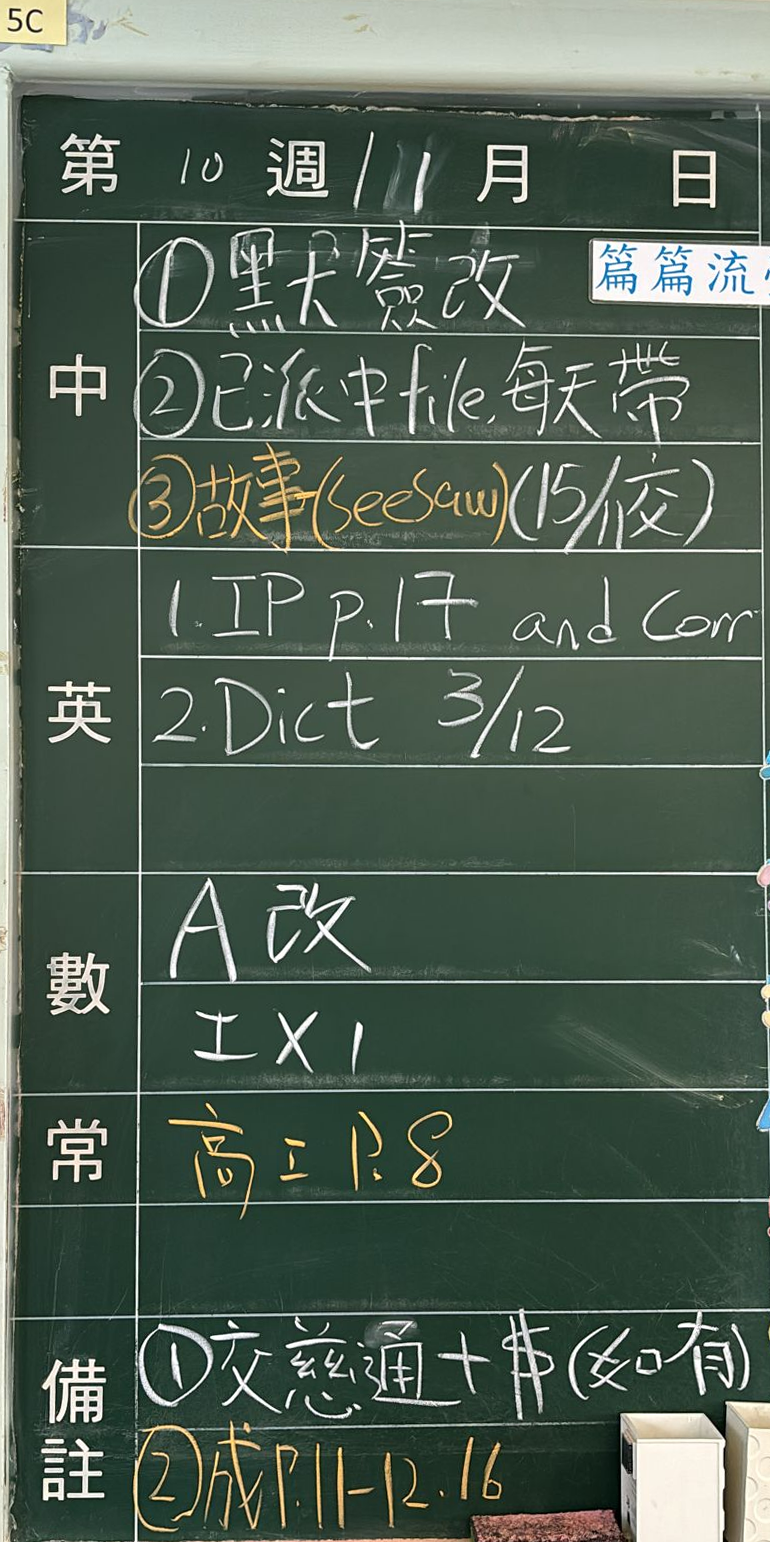 5C
第 10 週 11 月 日
中
①默簽改
篇篇流
②已派中file,每天帶
③故事(seesaw)(15/11交)
英
1.IP p.17 and Corr
2.Dict 3/12
數
A 改
工 X 1
常
高工 P.8
備註
①交慈通+$(如有)
②成P.11-12.16